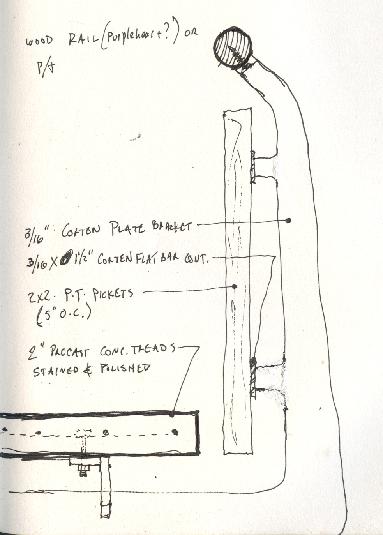 WOOD RAIL (Purpleheart?) OR
P/T
3/16" CORTEN PLATE BRACKET
3/16 X 1 1/2" CORTEN FLAT BAR CONT.
2X2 P.T. PICKETS
(5" O.C.)
2" PRECAST CONC. TREADS
STAINED & POLISHED